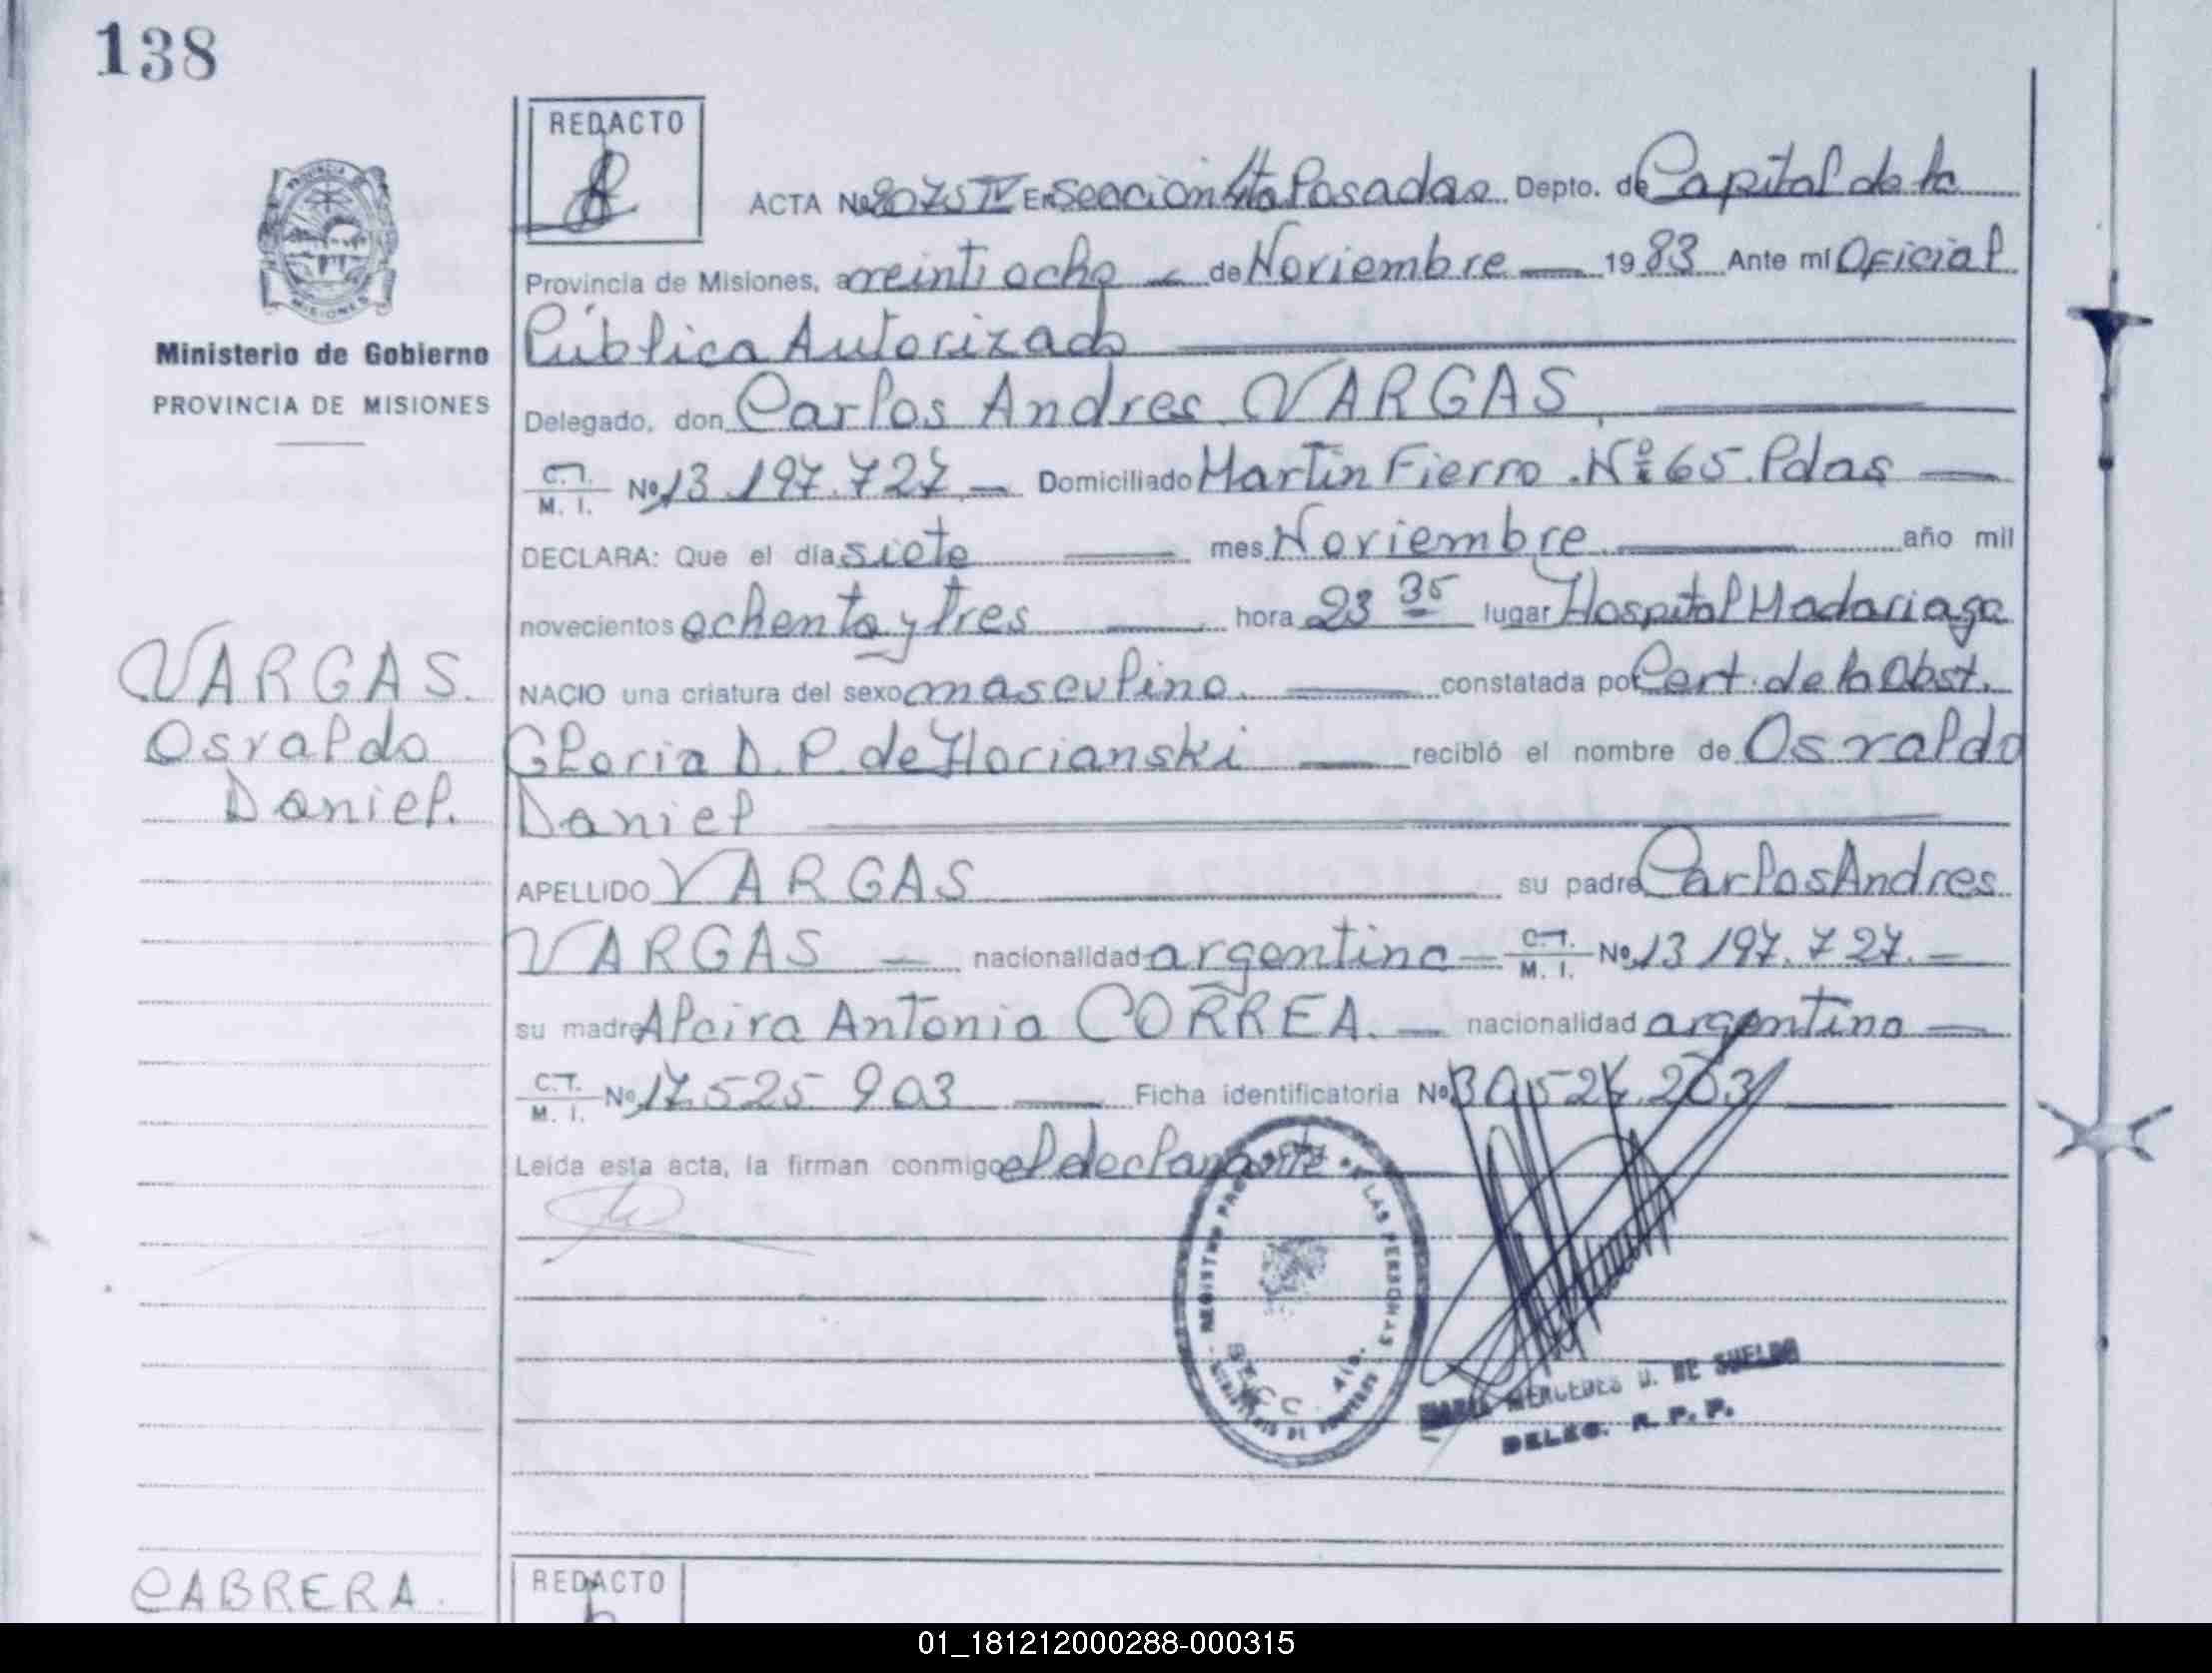 138
REDACTO
ACTA Nº 2075 IV En Sección 4ta Posadas Depto. de Capital de la
Provincia de Misiones, a veintiocho de Noviembre 1983 Ante mí Oficial
Pública Autorizado
Delegado, don Carlos Andres VARGAS,
C.I. M. I. Nº 13.197.727 Domiciliado Martín Fierro. Nº 65. Pdas
DECLARA: Que el día siete mes Noviembre año mil
novecientos ochenta y tres hora 23 35 lugar Hospital Madariaga
NACIO una criatura del sexo masculino. constatada por Cert. de la Obst.
Gloria D. P. de recibió el nombre de Osvaldo
Daniel
APELLIDO VARGAS su padre Carlos Andres
VARGAS nacionalidad argentina C.I. M. I. Nº 13 197.727.
su madre Alcira Antonia CORREA. nacionalidad argentina
C.I. M. I. Nº 17.525 903 Ficha identificatoria Nº 30.524.203
Leída esta acta, la firman conmigo el declarante
PROVINCIA DE
MISIONES
Ministerio de Gobierno
PROVINCIA DE MISIONES
VARGAS.
Osvaldo
Daniel.
REGISTRO DE LAS PERSONAS
SECC. 4ta.
MARIA MERCEDES D. DE SUELDO
DELEG. R. P. P.
CABRERA.
REDACTO
01_181212000288-000315